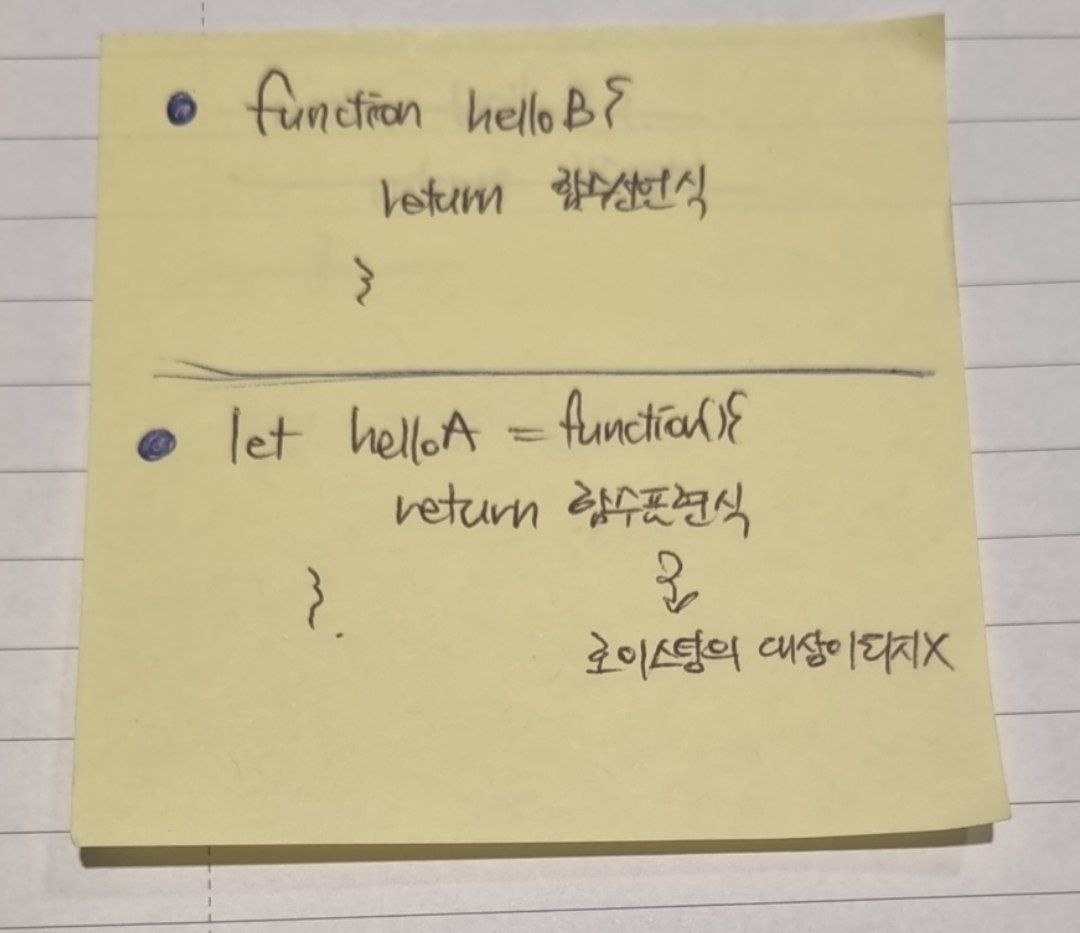 function helloB{
return 함수선언식
}
let helloA = function(){
return 함수표현식
}.
호이스팅의 대상이되지X